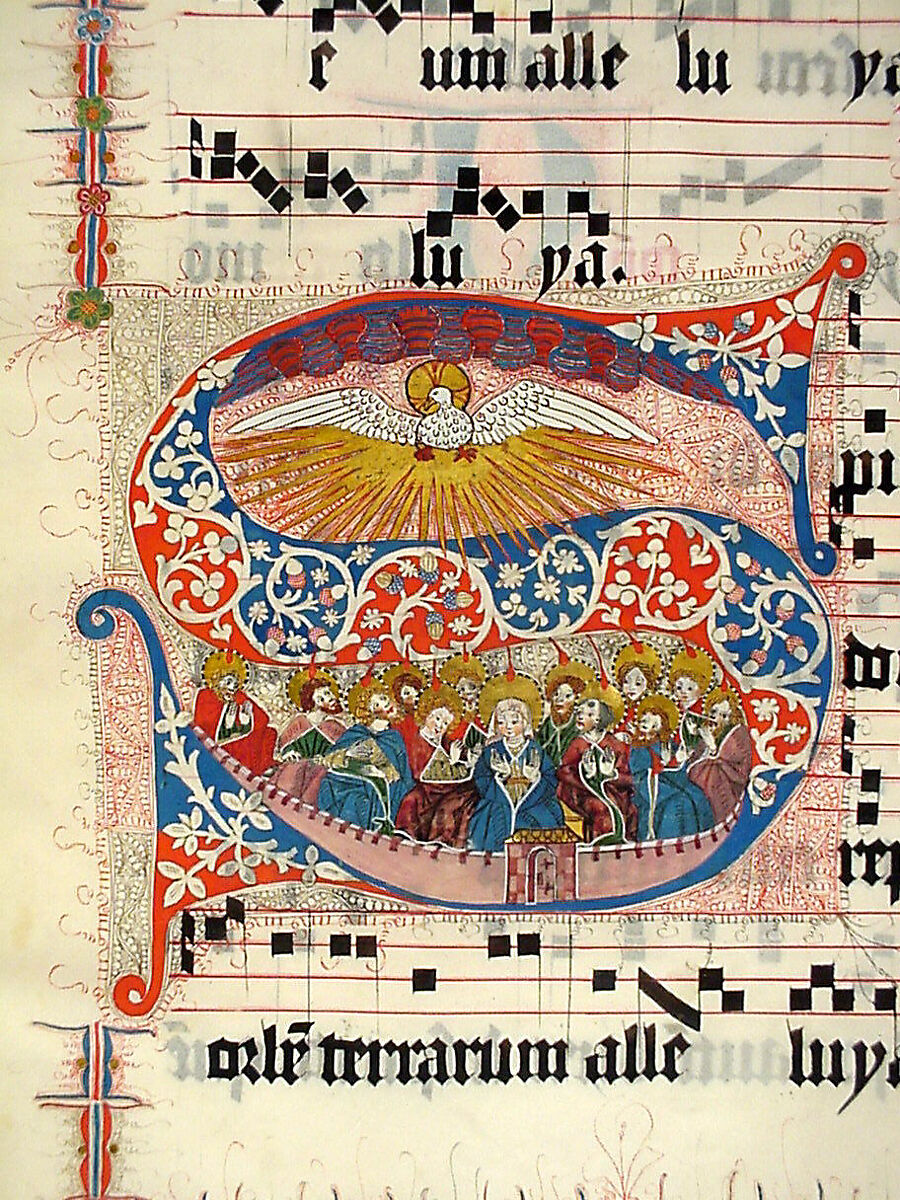 e um alle lu ya
lu ya.
S
pi
do
rep
orbē terrarum alle luya